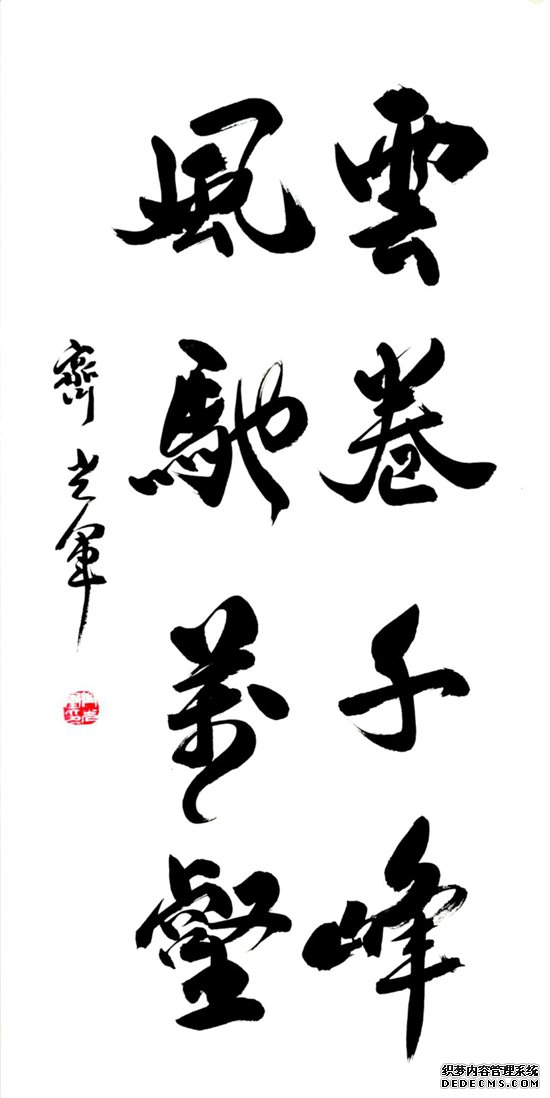 雲卷千峰
風馳萬壑
齊光軍
织梦内容管理系统
DEDECMS.COM